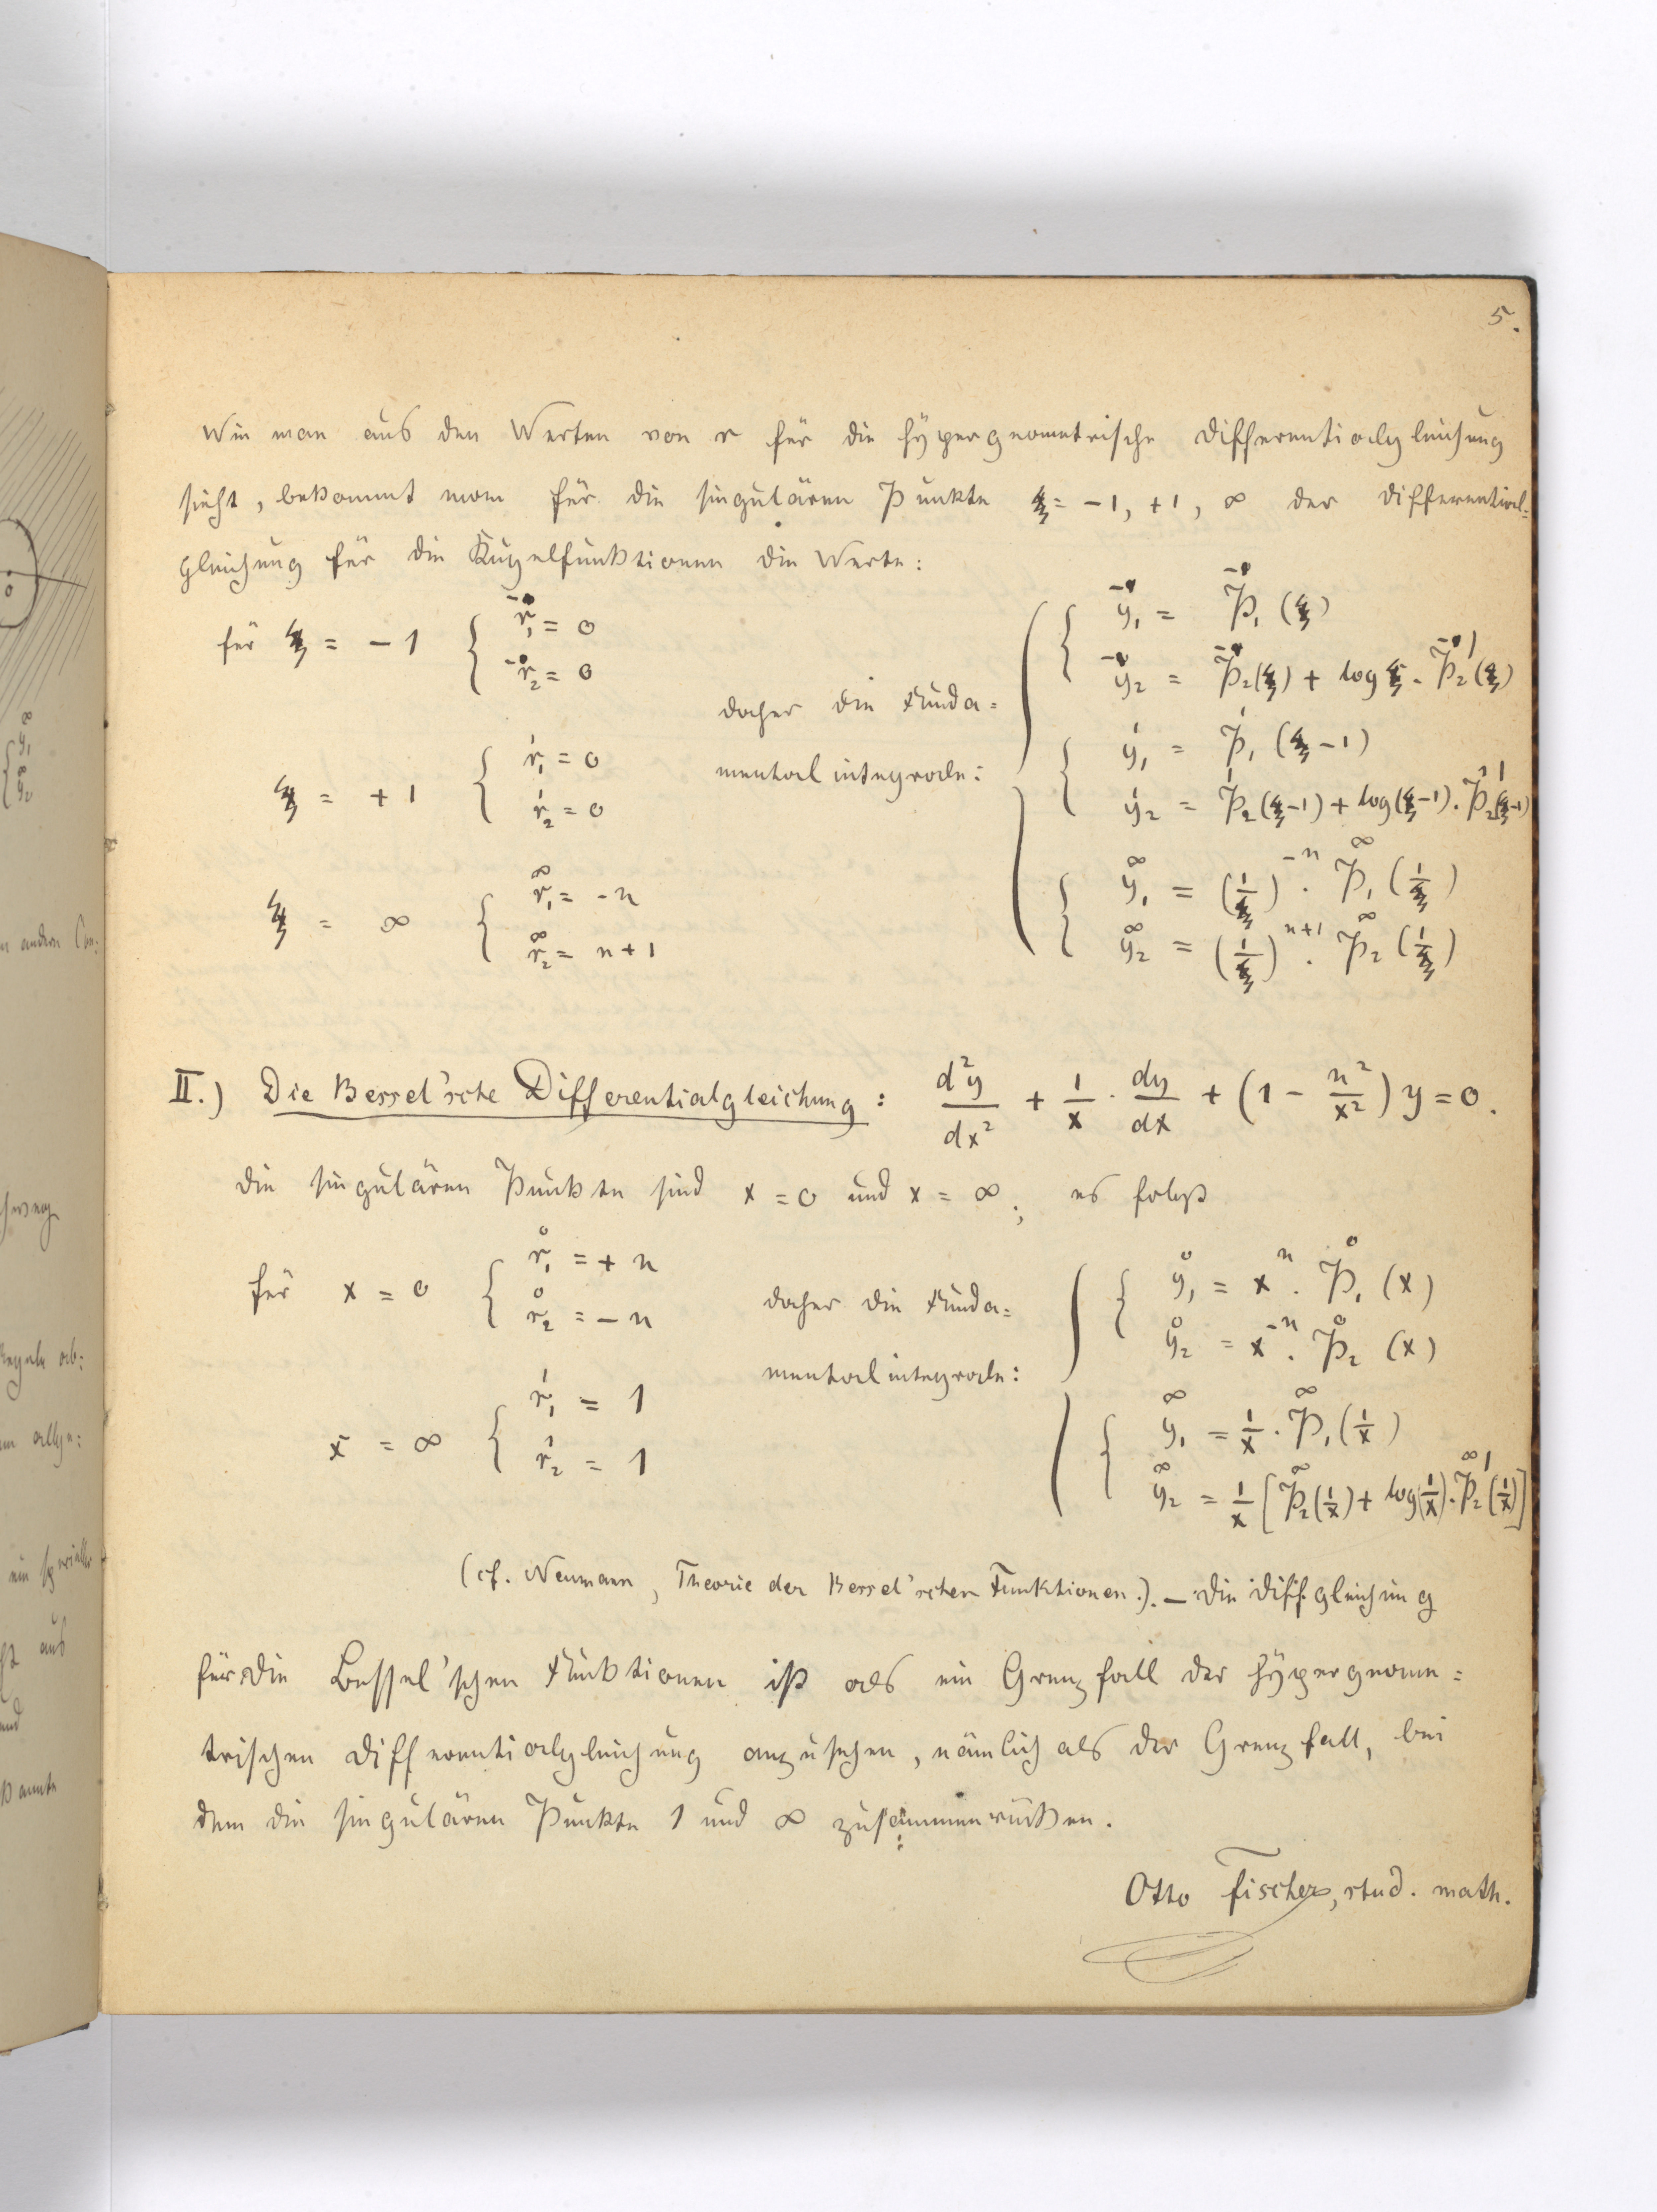 5.
Wie man aus den Werten von r für die hypergeometrische Differentialgleichung
sieht, bekommt man für die singulären Punkte ξ = -1, +1, ∞ der Differential=
gleichung für die Kugelfunktionen die Werte:
für ξ = - 1 { r₁ = 0
r₂ = 0
ξ = + 1 { r₁ = 0
r₂ = 0
ξ = ∞ { r₁ = - n
r₂ = n + 1
daher die Funda=
mentalintegrale:
y₁ = P₁ (ξ)
y₂ = P₂(ξ) + log ξ . P₂'(ξ)
y₁ = P₁ (ξ - 1)
y₂ = P₂ (ξ-1) + log(ξ-1) . P₂'(ξ-1)
y₁ = (1/ξ)⁻ⁿ . P₁ (1/ξ)
y₂ = (1/ξ)ⁿ⁺¹ . P₂ (1/ξ)
II.) Die Bessel'sche Differentialgleichung: d²y/dx² + 1/x . dy/dx + (1 - n²/x²) y = 0.
Die singulären Punkte sind x = 0 und x = ∞; es folgt
für x = 0 { r₁ = + n
r₂ = - n
x = ∞ { r₁ = 1
r₂ = 1
daher die Funda=
mentalintegrale:
y₁ = xⁿ . P₁ (x)
y₂ = x⁻ⁿ . P₂ (x)
y₁ = 1/x . P₁ (1/x)
y₂ = 1/x [P₂(1/x) + log(1/x) . P₂'(1/x)]
(cf. Neumann, Theorie der Bessel'schen Funktionen.). — Die Diff.gleichung
für die Bessel'schen Funktionen ist als ein Grenzfall der hypergeome=
trischen Differentialgleichung anzusehen, nämlich als der Grenzfall, bei
dem die singulären Punkte 1 und ∞ zusammenrücken.
Otto Fischer, stud. math.